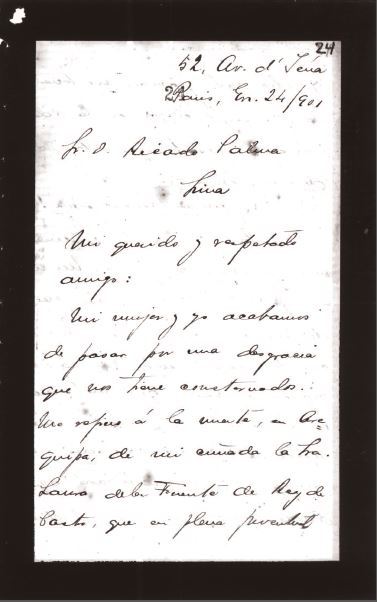 24
52, Av. d' Iéna
Paris, En. 24/901
Sr. D. Ricardo Palma
Lima
Mi querido y respetado
amigo:
Mi mujer y yo acabamos
de pasar por una desgracia
que nos tiene consternados.
Me refiero á la muerte, en Are=
quipa, de mi cuñada la Sra.
Laura de la Fuente de Rey de
Casto, que en plena juventud